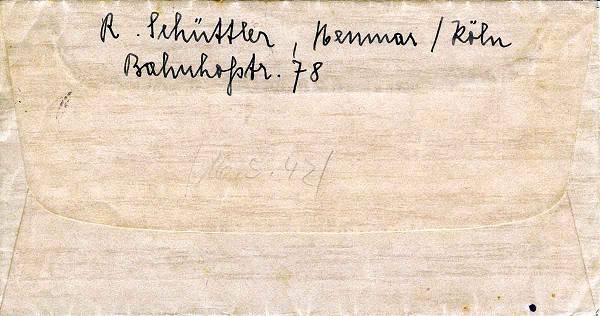 R. Schüttler, Heumar / Köln
Bahnhofstr. 78